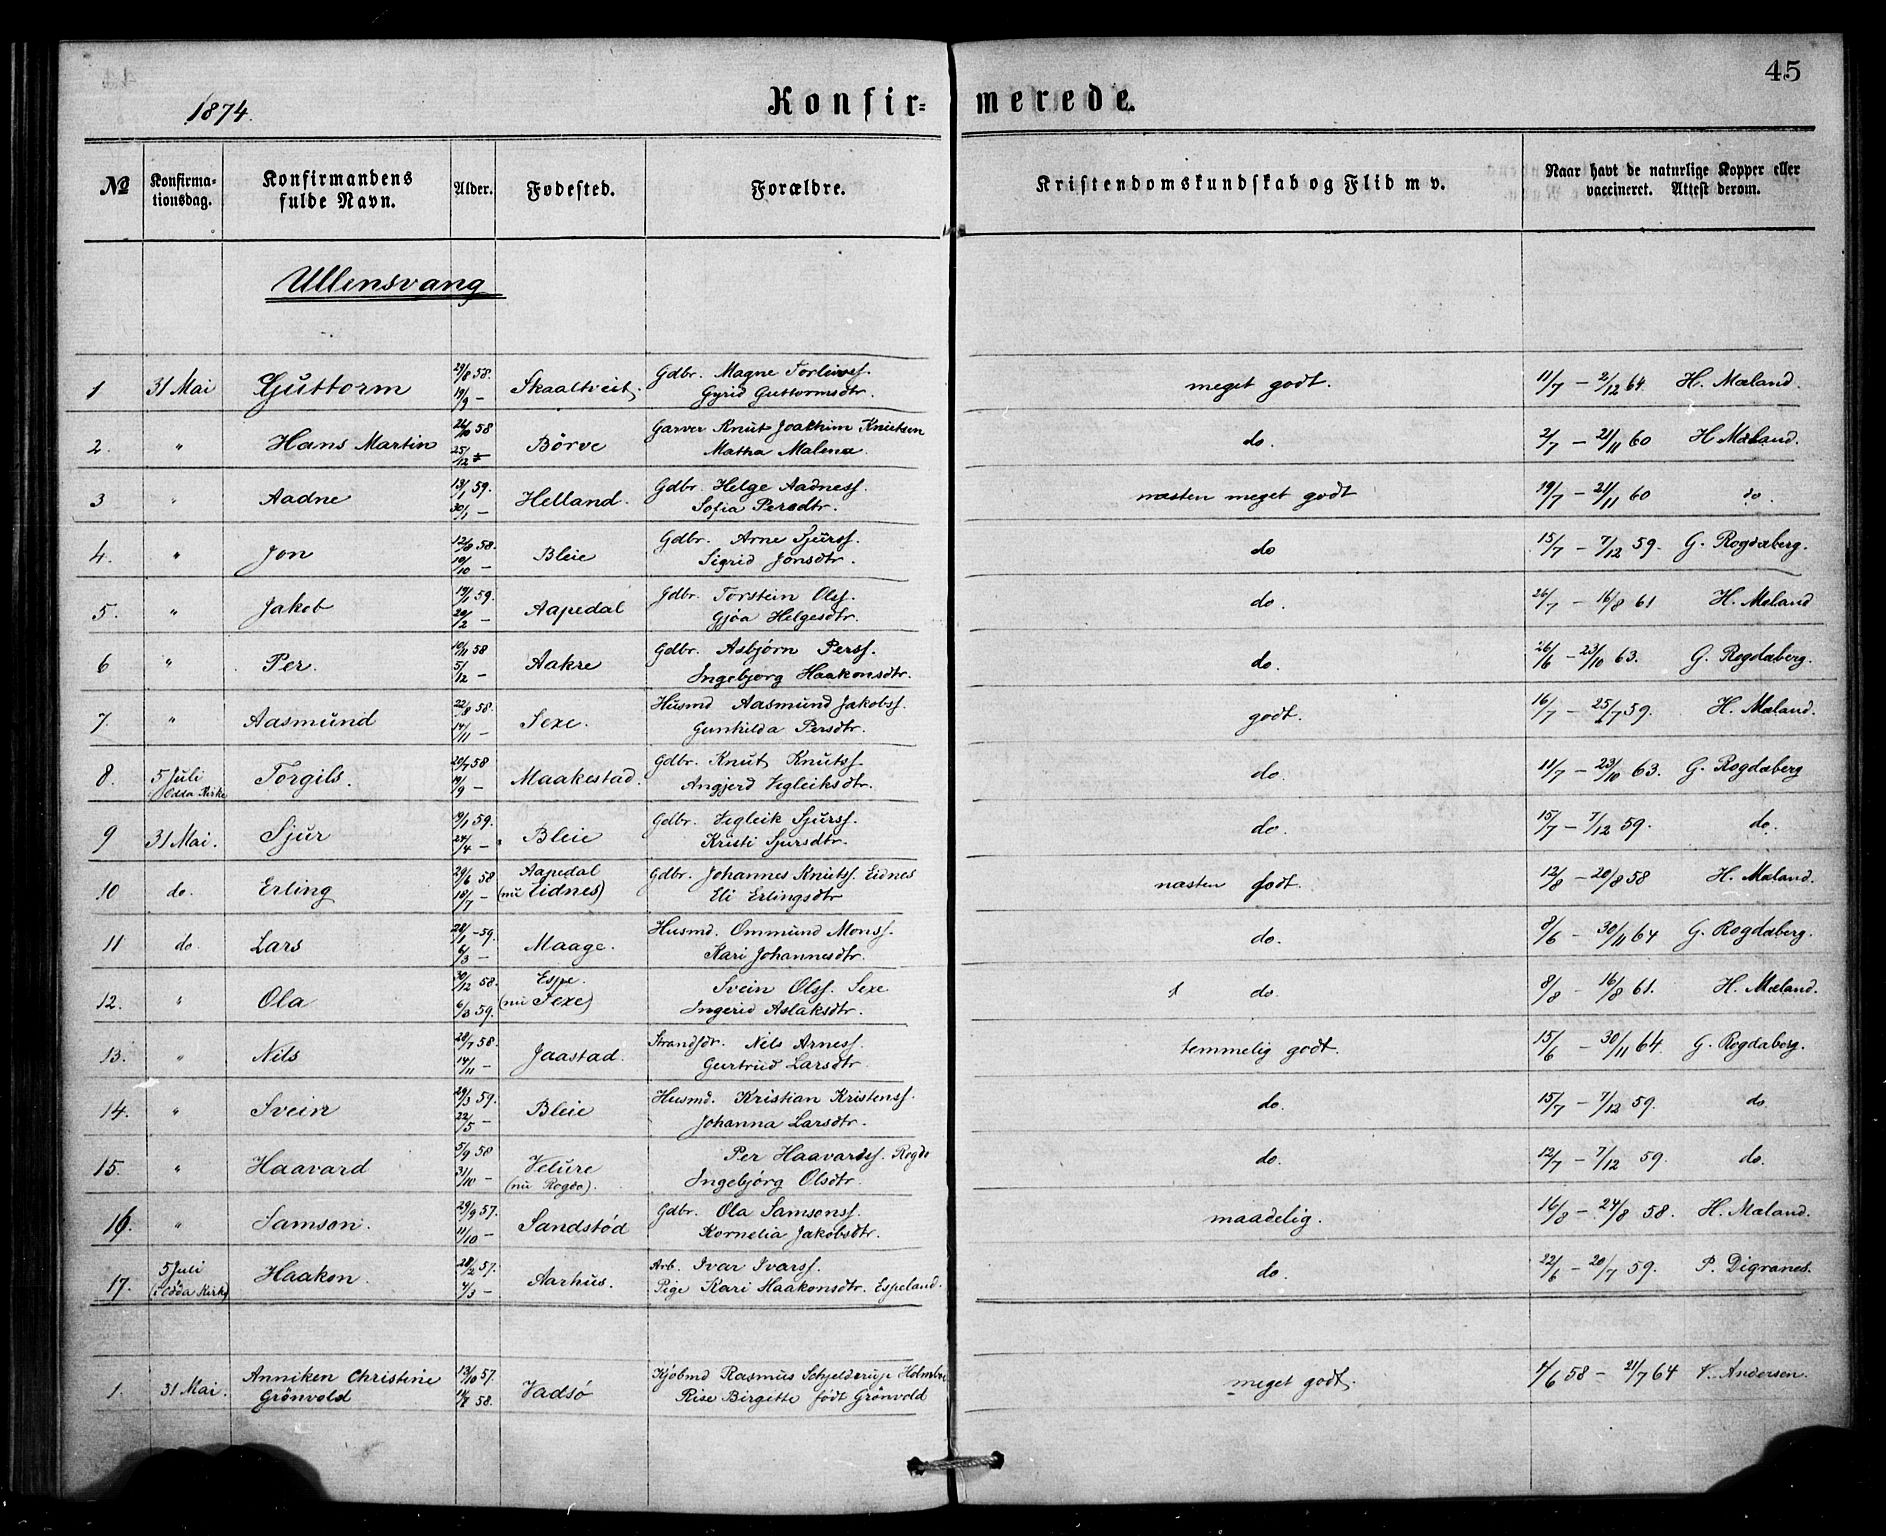 45
1874.
Konfir= merede.
№ Konfirma= tionsdag. Konfirmandens fulde Navn. Alder. Fødested. Forældre. Kristendomskundskab og Flid m v. Naar havt de naturlige Kopper eller vaccineret. Attest derom.
Ullensvang
29/8 58. Gdbr. Magne Torleivss.
1 31 Mai Guttorm Skaaltveit. meget godt. 11/7 – 2/12 64. H. Mæland.
19/9 – Gyrid Guttormsdtr.
26/10 58 Garver Knut Joakhim Knutsen
2. " Hans Martin Börve do. 2/7 – 21/11 60 H Mæland.
25/12 Matha Malena.
13/1 59. Gdbr. Helge Aadness.
3 " Aadne Helland. næsten meget godt 19/7 – 21/11 60 do.
30/1 – Sofia Persdtr.
12/8 58. Gdbr. Arne Sjurss.
4. " Jon Bleie do 15/7 – 7/12 59. G. Rogdaberg.
10/10 – Sigrid Jonsdtr.
19/1 59. Gdbr. Torstein Olss.
5. " Jakob Aapedal do. 26/7 – 16/8 61 H. Mæland
20/2 – Gjöa Helgesdtr.
10/11 58 Gdbr. Asbjörn Perss.
6 " Per. Aakre do. 26/6 – 23/10 63. G. Rogdaberg.
5/12 – Ingebjorg Haakonsdtr.
22/8 58. Husmd Aasmund Jakobss.
7. " Aasmund Sexe. godt. 16/7 – 25/7 59. H. Mæland.
14/11 – Gunhilda Persdtr.
20/7 58 Gdbr. Knut Knutss.
8. 5 Juli Torgils. Maakestad. do. 11/7 – 23/10 63. G. Rogdaberg
(i Odda Kirke 19/9 – Angjerd Vegleiksdtr.
19/1 59. Gdbr. Vegleik Sjurss.
9 31 Mai. Sjur Bleie do. 15/7 – 7/12 59. do.
24/4 – Kristi Sjursdtr.
29/6 58 Aapedal Gdbr. Johannes Knutss. Eidnes
10 do. Erling (nu Eidnes) næsten godt. 12/8 – 20/8 58 H. Mæland.
18/7 – Eli Erlingsdtr
28/1 – 59. Husmd. Ommund Monss.
11 do. Lars Maage. do. 8/6 – 30/11 64 G. Rogdaberg.
6/3 – Kari Johannesdtr.
30/12 58. Espe. Svein Olss. Sexe
12. " Ola (nu Sexe) do. 8/8 – 16/8 61. H. Mæland.
6/3 59. Ingerid Aslaksdtr.
28/7 58. Strandsdr. Nils Arness.
13. " Nils Jaastad. temmelig godt. 15/6 – 30/11 64. G. Rogdaberg.
14/11 – Gurtrud Larsdtr.
29/3 59. Husmd. Kristian Kristenss.
14. " Svein Bleie do. 15/7 – 7/12 59. do.
22/5 – Johanna Larsdtr.
5/9 58 Per Haavardss. Rogde
15. " Haavard Velure do. 12/7 – 7/12 59. do.
31/10 – (nu Rogda). Ingebjörg Olsdtr.
29/9 57. Gdbr. Ola Samsonss.
16. " Samson. Sandstød maadelig. 16/8 – 24/8 58. H. Mæland.
11/10 – Kornelia Jakobsdtr.
5 Juli 28/2 57. Arb. Ivar Ivarss.
17. (i Odda Kirke) Haakon. Aarhus. do. 22/6 – 20/7 59. P. Digranes.
4/3 – Pige Kari Haakonsdtr. Espeland.
Anniken Christine 13/10 57. Kjöbmd Rasmus Schjelderup
1. 31 Mai. Grönvold Vadsö meget godt. 4/6 58 – 21/7 64 V. Andersen.
58. Rise Birgitte født Grönvold